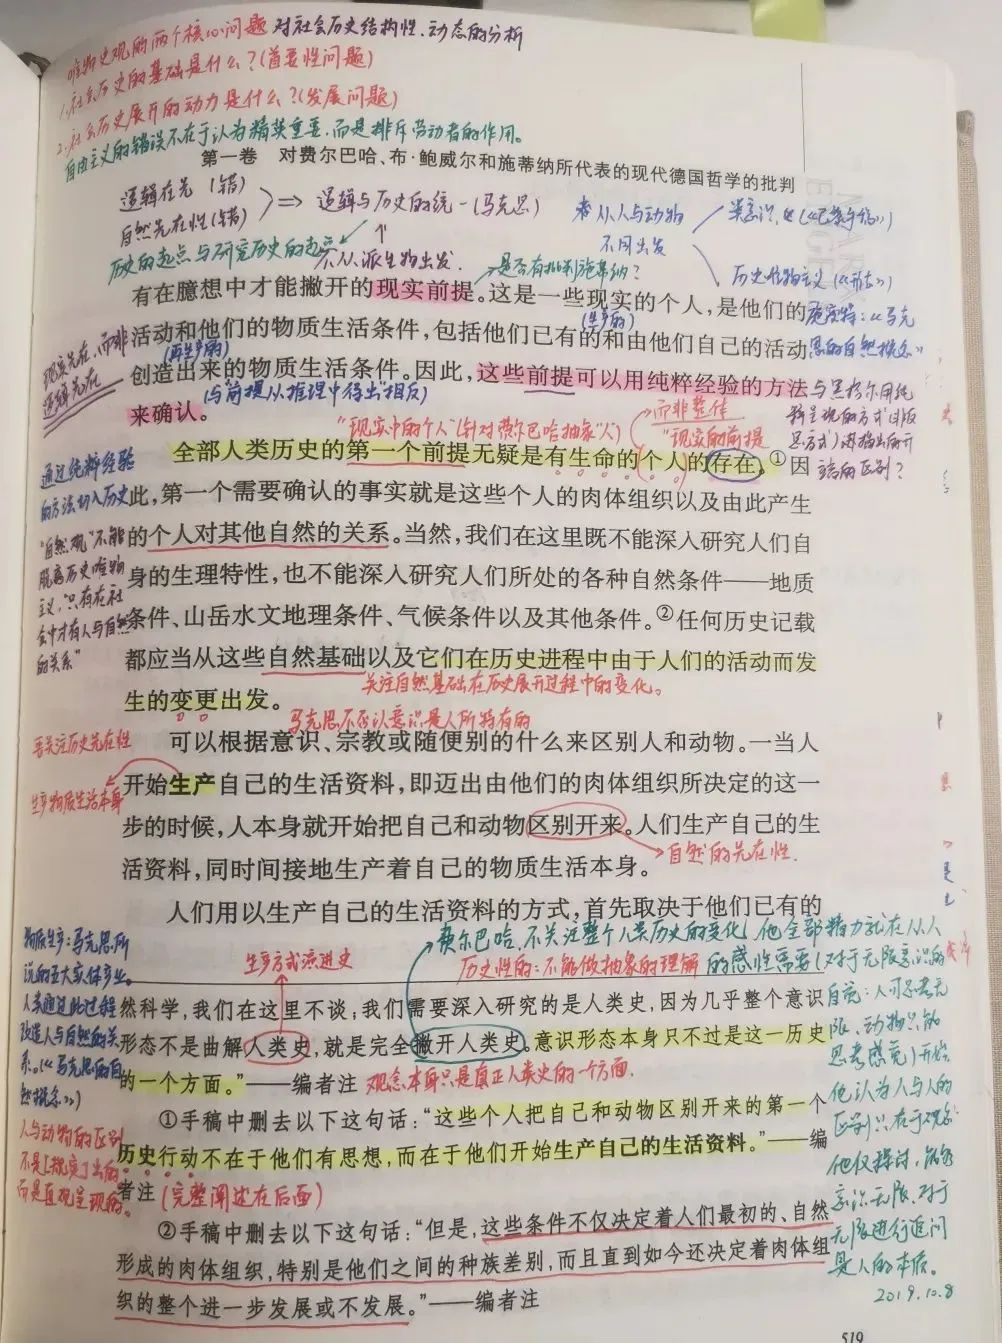 唯物史观的两个核心问题 对社会历史结构性、动态的分析
1.社会历史的基础是什么?(首要性问题)
2.社会历史展开的动力是什么?(发展问题)
自由主义的错误不在于认为精英重要,而是排斥劳动者的作用。
第一卷 对费尔巴哈、布·鲍威尔和施蒂纳所代表的现代德国哲学的批判
逻辑在先(错)
自然先在性(错)
⇒ 逻辑与历史的统一(马克思)
历史的起点与研究历史的起点
不从派生物出发.
是否有批判施蒂纳?
从人与动物
不同出发
历史唯物主义(《形态》)
有在臆想中才能撇开的现实前提。这是一些现实的个人,是他们的
(生产的)
施密特:《马克
思的自然概念》
活动和他们的物质生活条件,包括他们已有的和由他们自己的活动
(再生产的)
创造出来的物质生活条件。因此,这些前提可以用纯粹经验的方法
(与前提从推理中得出"相反)
来确认。
现实先在,而非
逻辑先在
与黑格尔用纯
"现实中的个人"(针对费尔巴哈抽象"人")
而非整体
"现实的前提
全部人类历史的第一个前提无疑是有生命的个人的存在。①因
此,第一个需要确认的事实就是这些个人的肉体组织以及由此产生
的个人对其他自然的关系。当然,我们在这里既不能深入研究人们自
身的生理特性,也不能深入研究人们所处的各种自然条件——地质
条件、山岳水文地理条件、气候条件以及其他条件。②任何历史记载
都应当从这些自然基础以及它们在历史进程中由于人们的活动而发
关注自然基础在历史展开过程中的变化。
生的变更出发。
通过纯粹经验
的方法切入历史
"自然观"不能
脱离历史唯物
主义,"只有在社
会中才有人与自然
的关系"
马克思不否认意识是人所特有的
可以根据意识、宗教或随便别的什么来区别人和动物。一当人
开始生产自己的生活资料,即迈出由他们的肉体组织所决定的这一
步的时候,人本身就开始把自己和动物区别开来。人们生产自己的生
活资料,同时间接地生产着自己的物质生活本身。
自然的先在性.
要关注历史先在性
生产物质生活本身
人们用以生产自己的生活资料的方式,首先取决于他们已有的
费尔巴哈,不关注整个人类历史的变化,他全部精力就在从人
的感性需要(对于无限意识的
生产方式演进史
历史性的:不能做抽象的理解
然科学,我们在这里不谈;我们需要深入研究的是人类史,因为几乎整个意识
形态不是曲解人类史,就是完全撇开人类史。意识形态本身只不过是这一历史
的一个方面。”——编者注
观念本身只是真正人类史的一个方面.
①手稿中删去以下这句话:“这些个人把自己和动物区别开来的第一个
历史行动不在于他们有思想,而在于他们开始生产自己的生活资料。”——编
者注
(完整阐述在后面)
②手稿中删去以下这句话:“但是,这些条件不仅决定着人们最初的、自然
形成的肉体组织,特别是他们之间的种族差别,而且直到如今还决定着肉体组
织的整个进一步发展或不发展。”——编者注
物质生产:马克思所
说的五大实体产业。
人类通过此过程
改造人与自然的关
系。(《马克思的自
然概念》)
人与动物的区别
不是[规定]出的
而是直观呈现的。
自觉:人可思考无
限,动物只能
思考感觉)开始,
他认为人与人的
区别只在于观念
他仅探讨,能够
意识无限,对于
无限进行追问
是人的本质。
2019.10.8
519